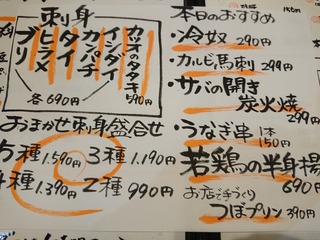 刺身
カツオのタタキ 590円
インダイ
カンパチ
タイ
ヒラメ
ブリ
各690円
おまかせ刺身盛合せ
5種1,590円 3種1,190円
4種1,390円 2種990円
本日のおすすめ
・冷奴 290円
・カルビ馬刺 299円
・サバの開き
炭火焼
299円
・うなぎ串 1本
150円
若鶏の半身揚
690円
お店で手づくり
つぼプリン 390円